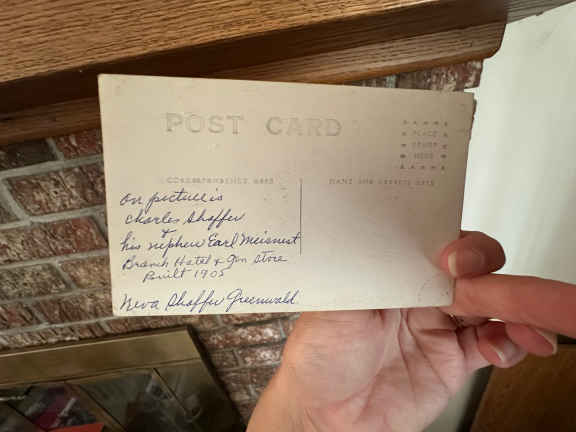 POST CARD
PLACE
STAMP
HERE
CORRESPONDENCE HERE
NAME AND ADDRESS HERE
On picture is
Charles Shaffer
+
his nephew Earl Meisnest
Branch Hotel & Gen Store
Built 1905
Neva Shaffer Greenwald.